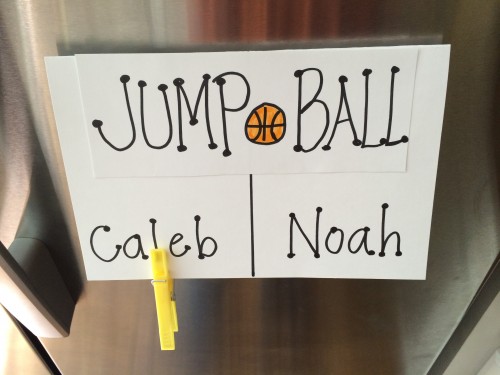 JUMP BALL
Caleb Noah